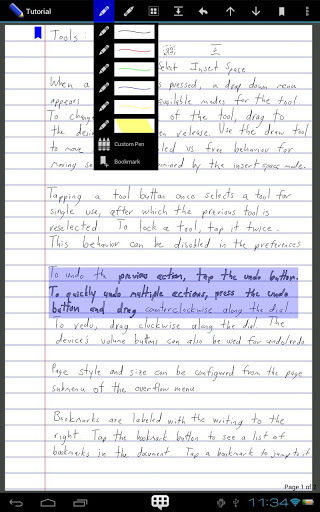 Tutorial
Tools:
Select Insert Space
When a is pressed, a drop down menu
appears available modes for the tool.
To chang of the tool, drag to
the desi en release. Use the draw tool
to move led vs free behavior for
moving se by the insert space mode.
Custom Pen
Bookmark
Tapping a tool button once selects a tool for
single use, after which the previous tool is
reselected To lock a tool, tap it twice.
This behavior can be disabled in the preferences
To undo the previous action, tap the undo button.
To quickly undo multiple actions, press the undo
button and drag counterclockwise along the dial
To redo, drag clockwise along the dial. The
device's volume buttons can also be used for undo/redo
Page style and size can be configured from the page
submenu of the overflow menu
Bookmarks are labeled with the writing to the
right Tap the bookmark button to see a list of
bookmarks in the document Tap a bookmark to jump to it
Page 1 of 2
11:34